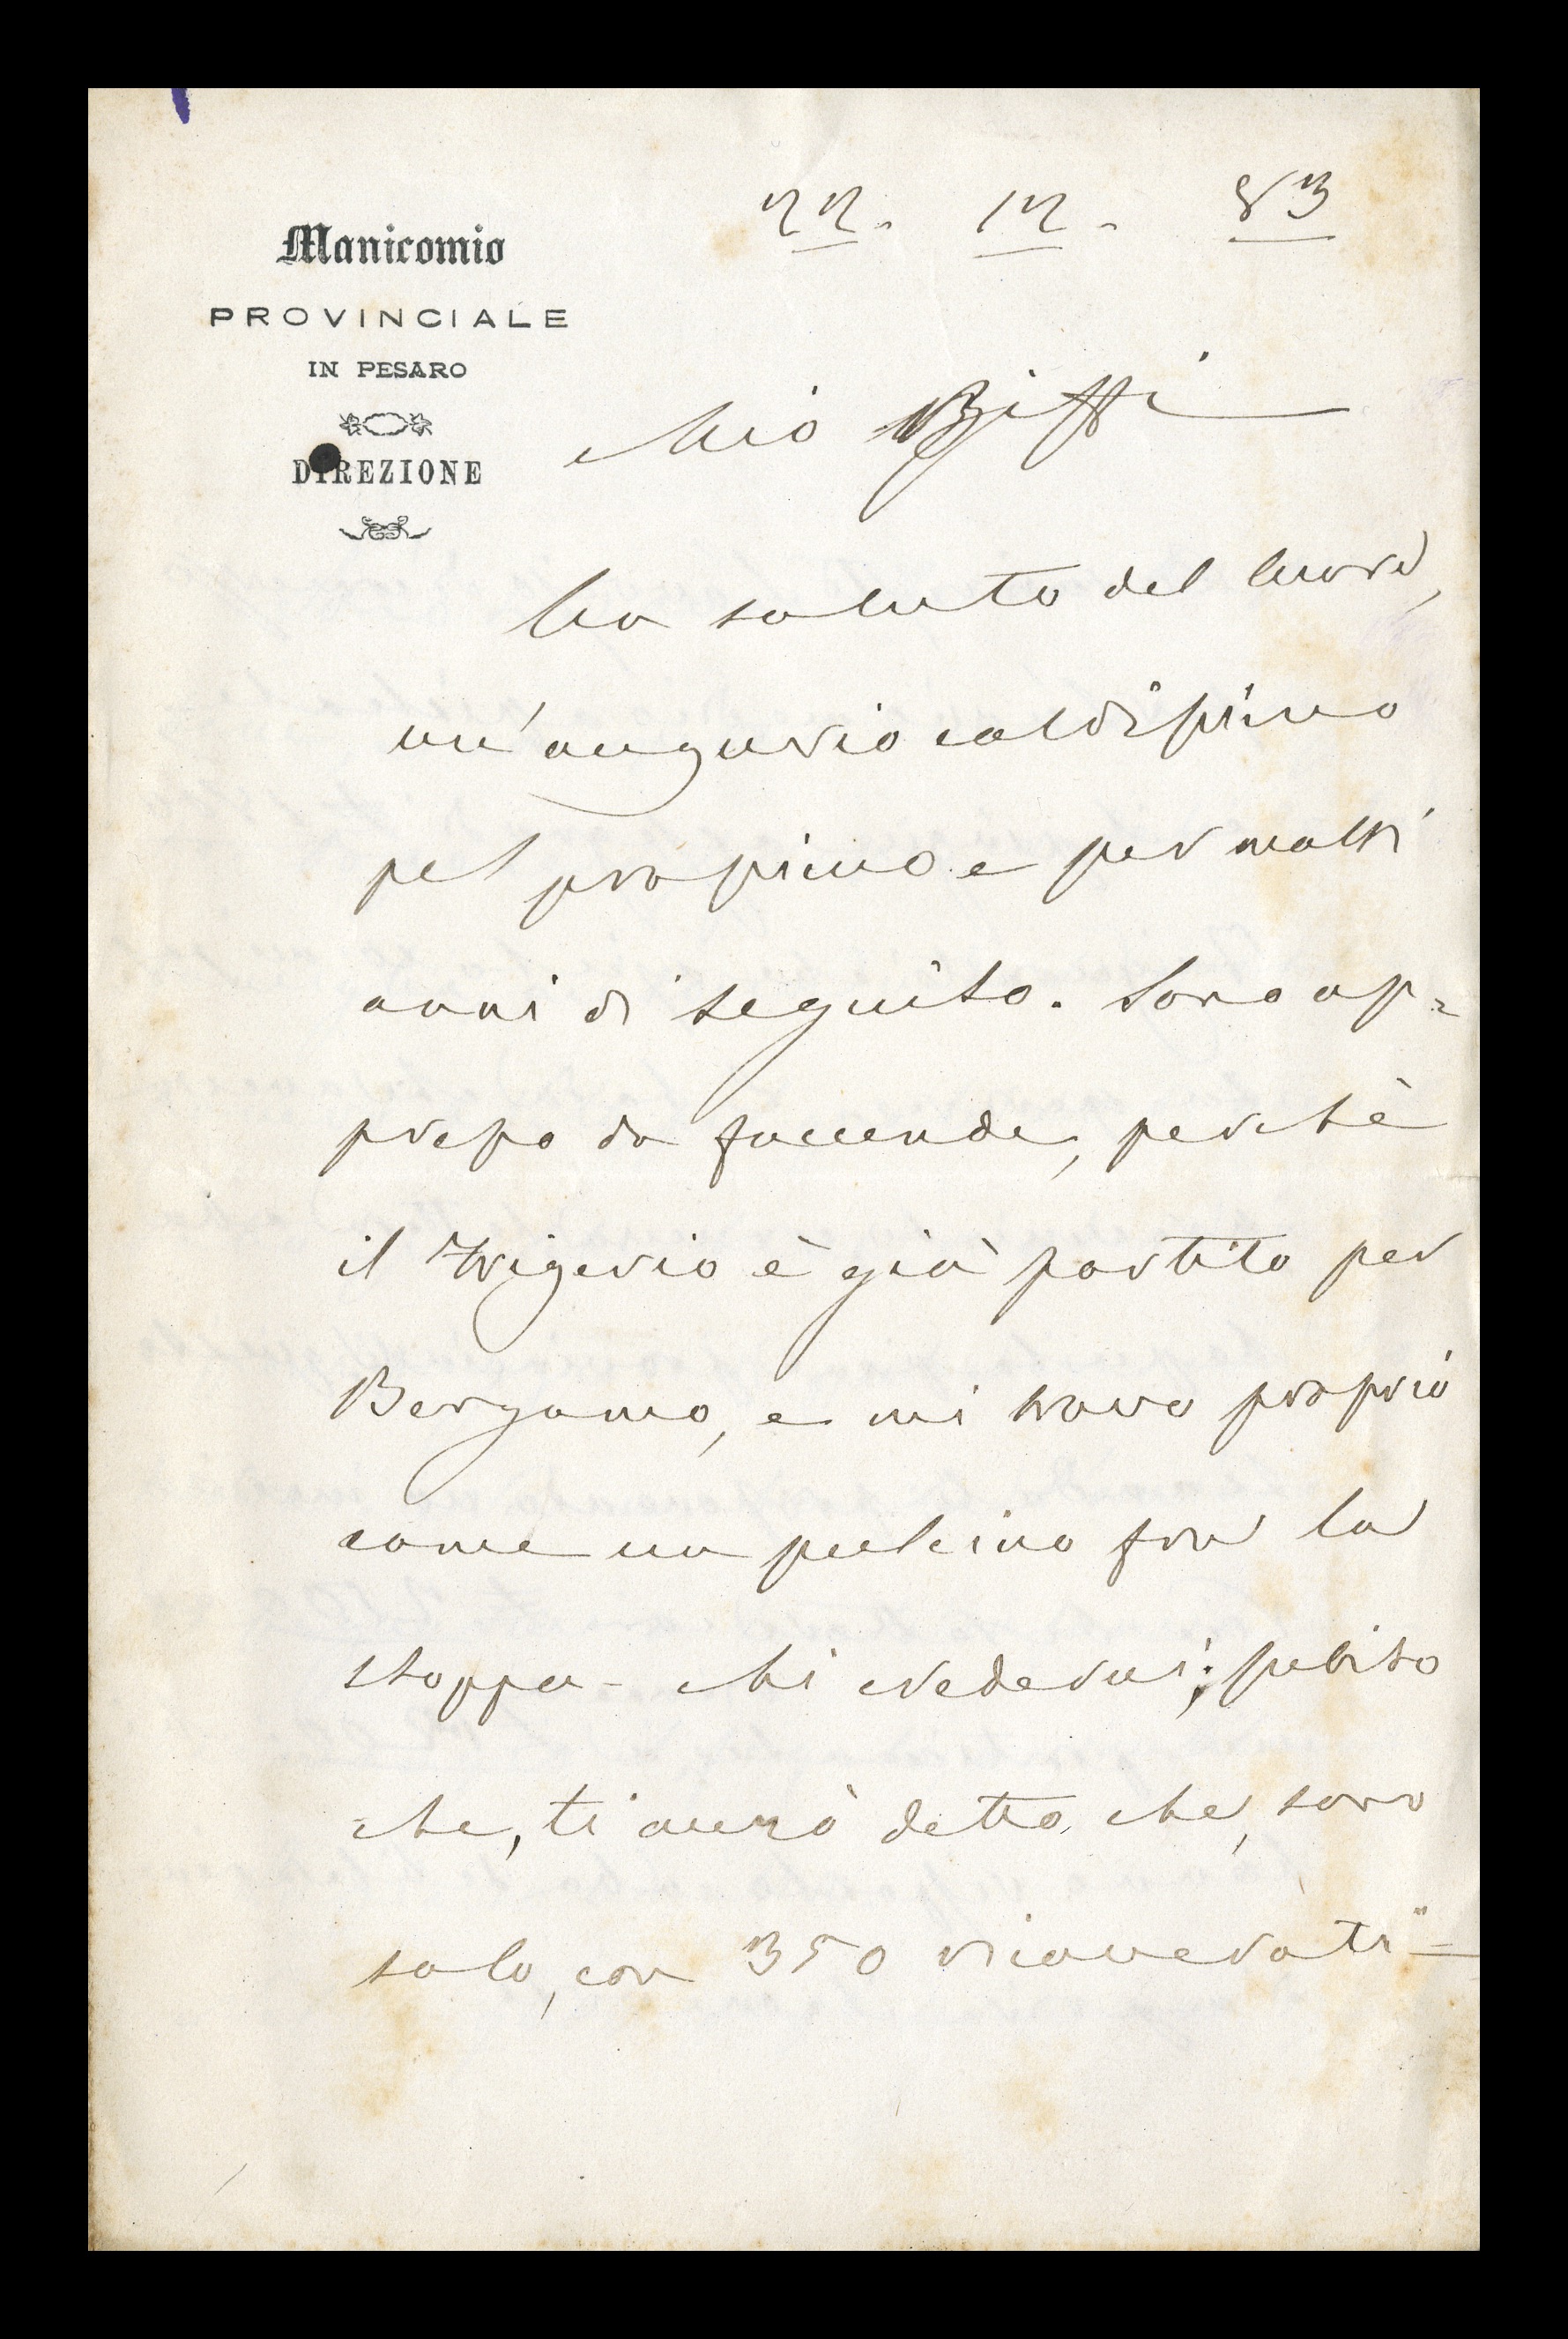 Manicomio
PROVINCIALE
IN PESARO
DIREZIONE
22. 12. 83
Mio Biffi
Un saluto del cuore,
un'augurio caldissimo
pel prossimo e per molti
anni di seguito. Sono op=
presso da faccende, perchè
il Frigerio è già partito per
Bergamo, e mi trovo proprio
come un pulcino fra la
stoppa - Mi crederai; subito
che, ti avrò detto, che, sono
solo, con 350 ricoverati =